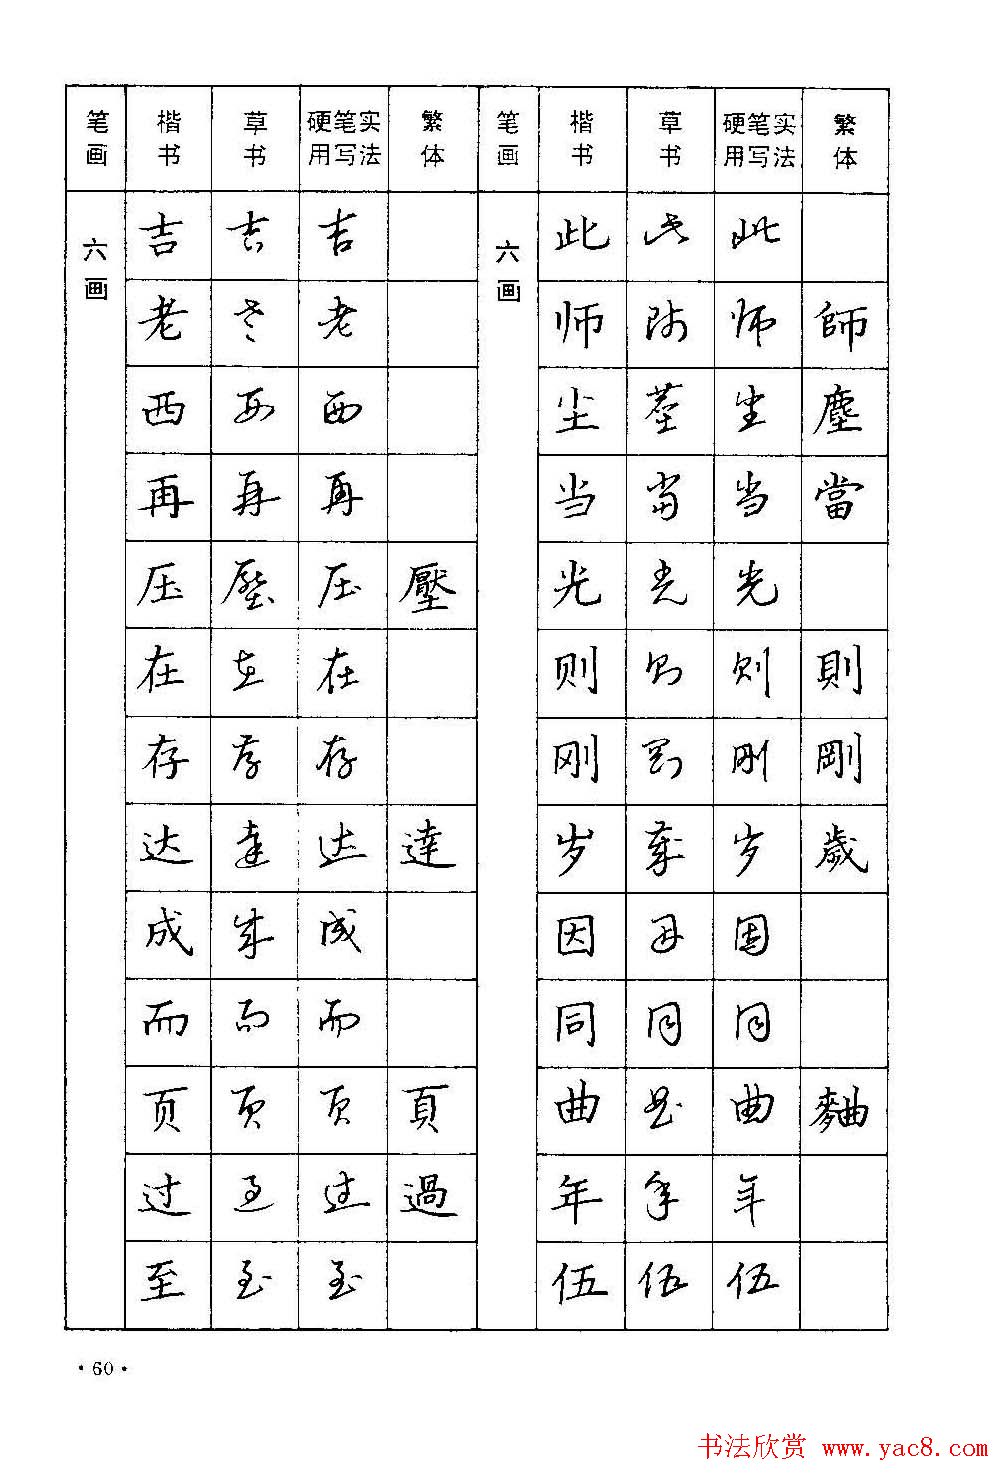 笔画 楷书 草书 硬笔实用写法 繁体 笔画 楷书 草书 硬笔实用写法 繁体
六画 吉 吉 吉 六画 此 此 此
老 老 老 师 师 师 師
西 西 西 尘 尘 尘 塵
再 再 再 当 当 当 當
压 壓 压 壓 光 光 光
在 在 在 则 则 则 則
存 存 存 刚 刚 刚 剛
达 達 达 達 岁 歲 岁 歲
成 成 成 因 因 因
而 而 而 同 同 同
页 页 页 頁 曲 曲 曲 麯
过 过 过 過 年 年 年
至 至 至 伍 伍 伍
·60·
书法欣赏 www.yac8.com